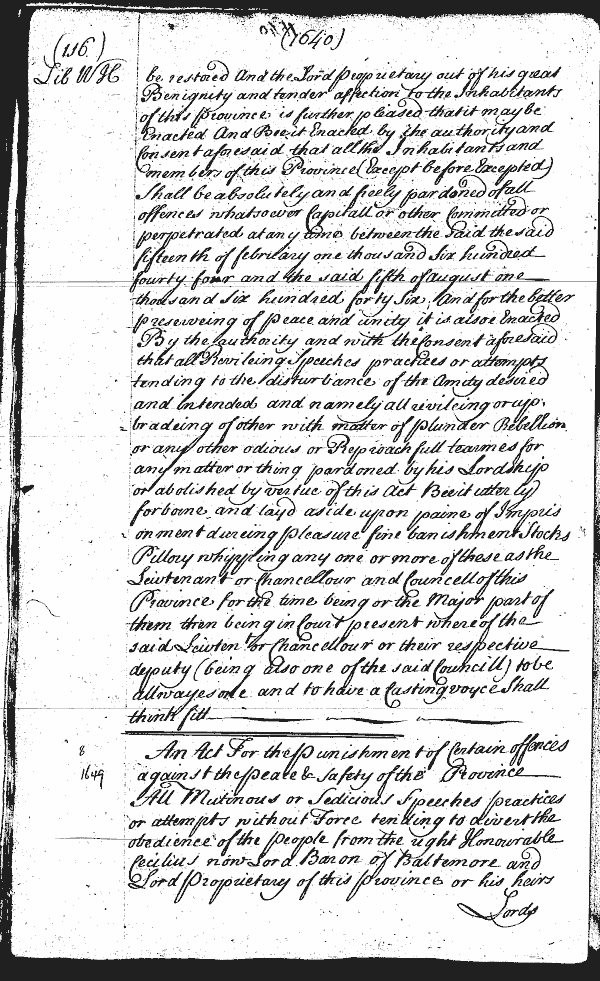 (1640)
(116.)
Lib WH
be restored And the Lord Proprietary out of his great
Benignity and tender affection to the Inhabitants
of this Province is further pleased that it may be
Enacted And Bee it Enacted by the authority and
Consent aforesaid that all the Inhabitants and
members of this Province (Except before Excepted)
Shall be absolutely and freely pardoned of all
offences whatsoever Capitall or other Committed or
perpetrated at any time between the Said the said
fifteenth of february one thousand Six hundred
fourty four and the said fifth of august one
thousand Six hundred forty Six. And for the better
preserveing of Peace and unity it is alsoe Enacted
By the authority and with the Consent aforesaid
that all Revileing Speeches practices or attempts
tending to the disturbance of the Amity desired
and intended and namely all revileing or up-
bradeing of other with matter of Plunder Rebellion
or any other odious or Reproachfull tearmes for
any matter or thing pardoned by his Lordship
or abolished by vertue of this Act Bee it utterly
forborne and layd aside upon paine of Impris
onment dureing pleasure fine banishment Stocks
Pillory whippling any one or more of these as the
Leivtenant or Chancellour and Councell of this
Province for the time being or the Major part of
them then being in Court present where of the
said Leivten.t or Chancellour or their respective
deputy (being also one of the said Councill) to be
allwayes one and to have a Casting voyce Shall
think fitt
8
1649
An Act For the Punishment of Certain offences
against the Peace & Safety of the Province
All Mutinous or Sedicious Speeches practices
or attempts without Force tending to divert the
obedience of the People from the right Honourable
Cecilius now Lord Baron of Baltemore and
Lord Proprietary of this Province or his heirs
Lords